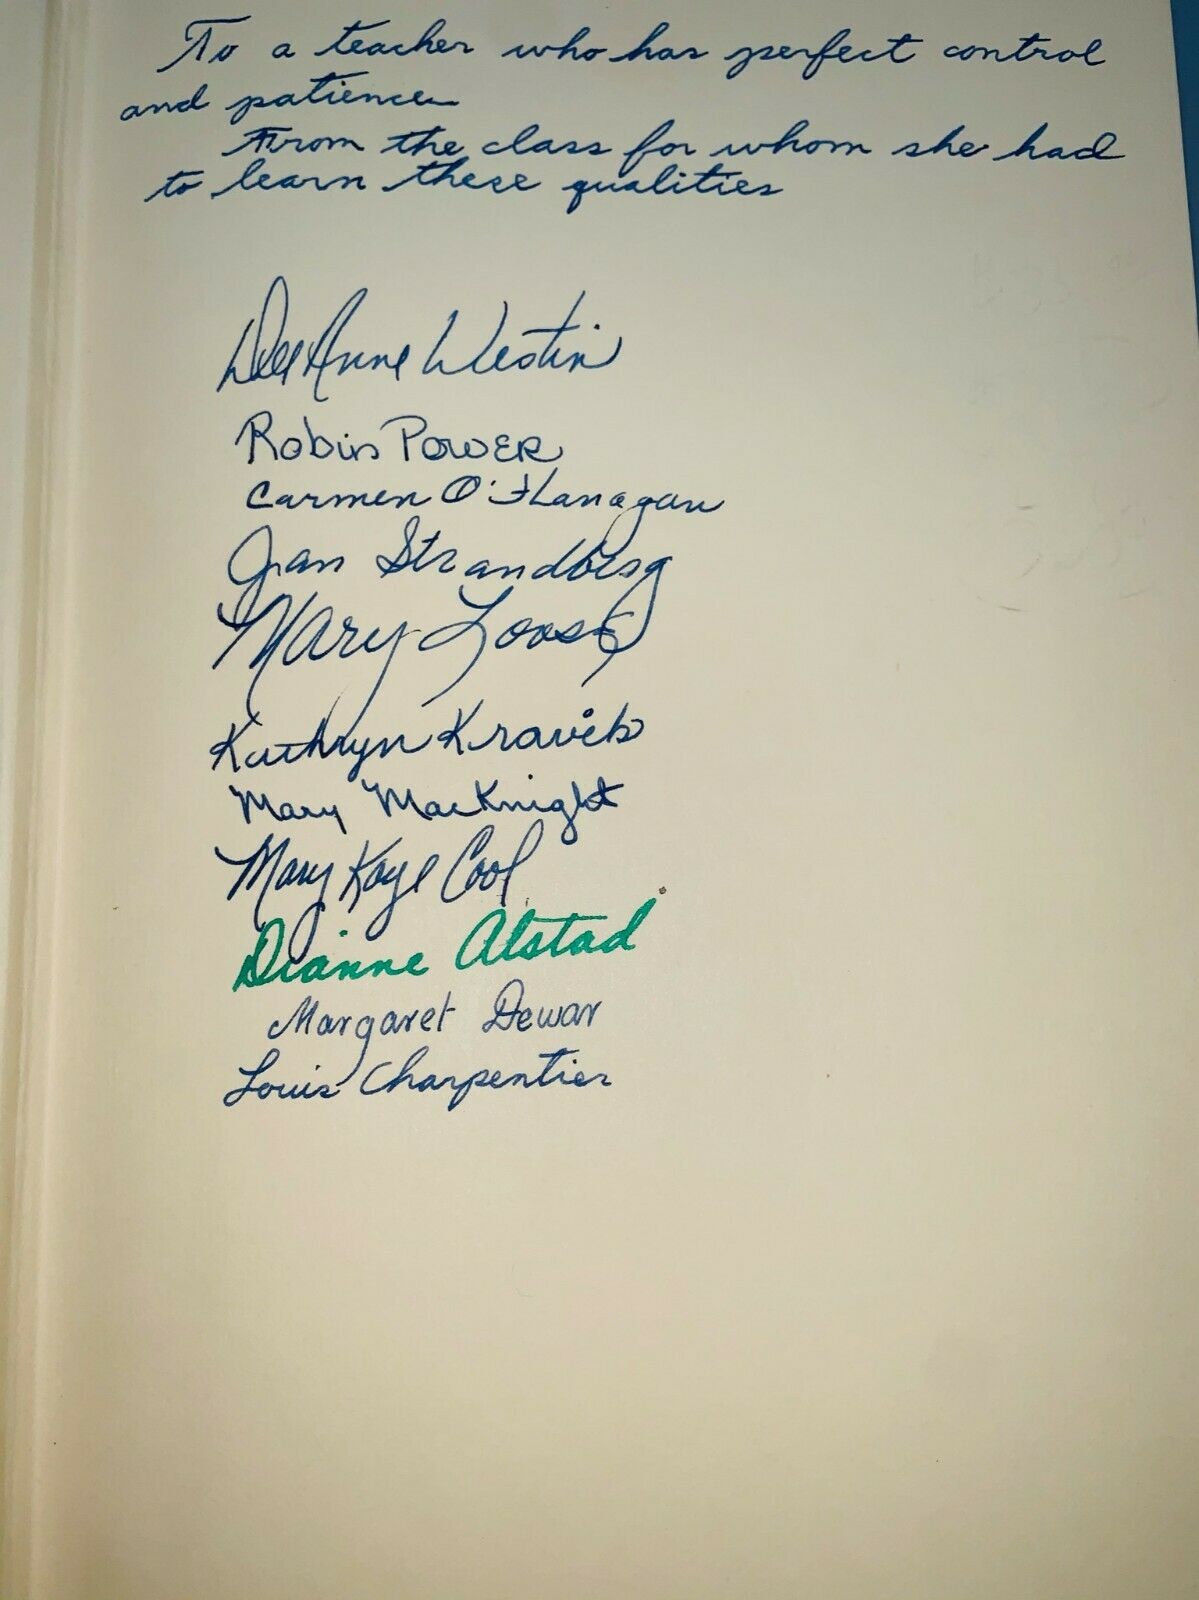 To a teacher who has perfect control
and patience
From the class for whom she had
to learn these qualities
DeeAnne Westin
Robin Power
Carmen O'Flanagan
Jean Strandberg
Mary Loose
Kathryn
Mary MacKnight
Mary Kaye Cool
Dianne Alstad
Margaret Dewar
Louis Charpentier